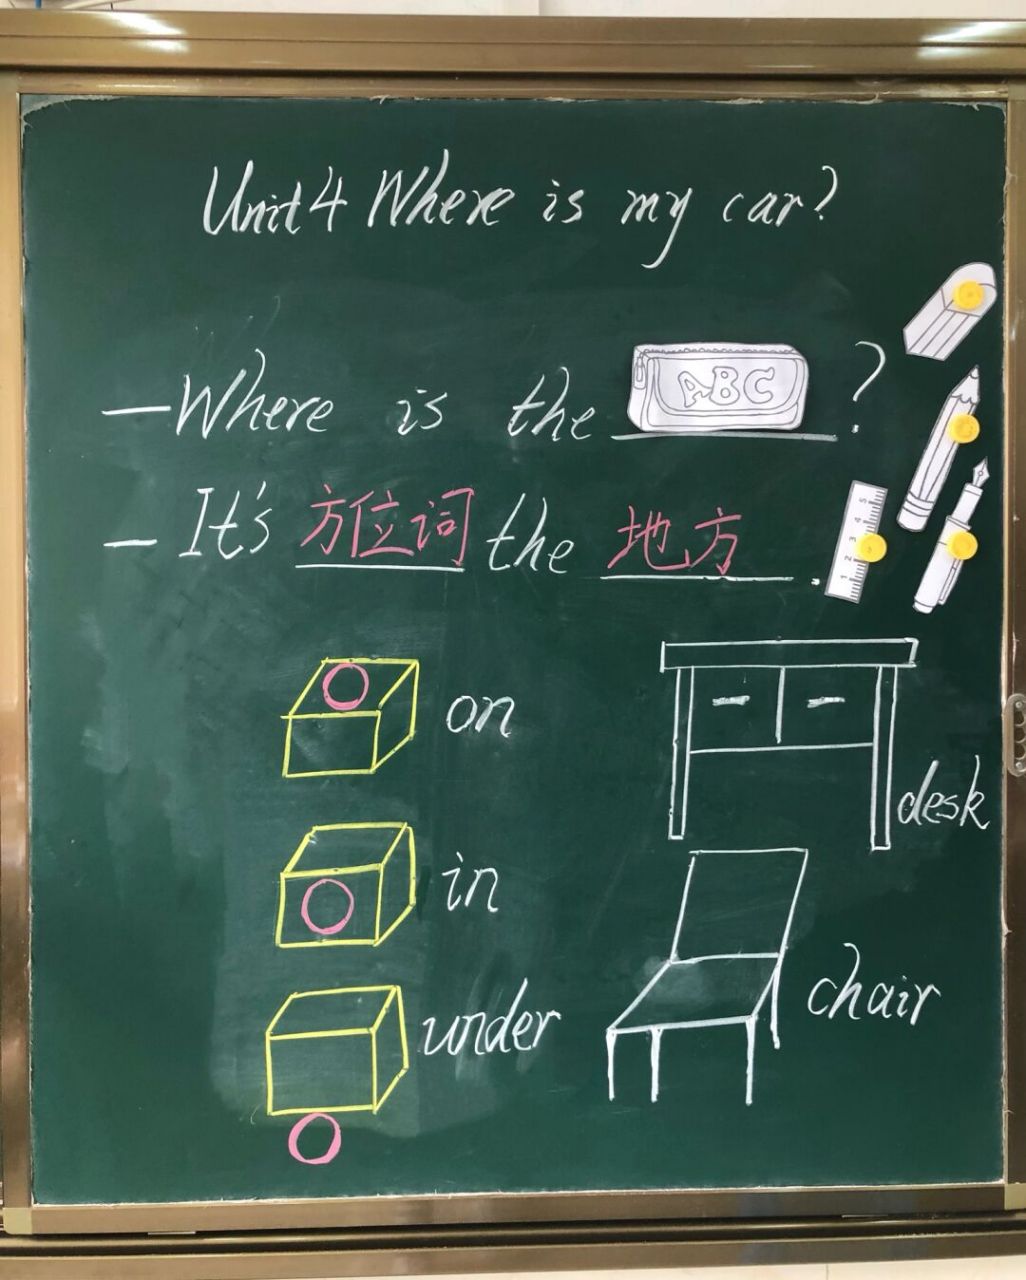 Unit 4 Where is my car?
—Where is the ABC ?
— It's 方位词 the 地方 .
1 2 3 4 5
on
desk
in
chair
under